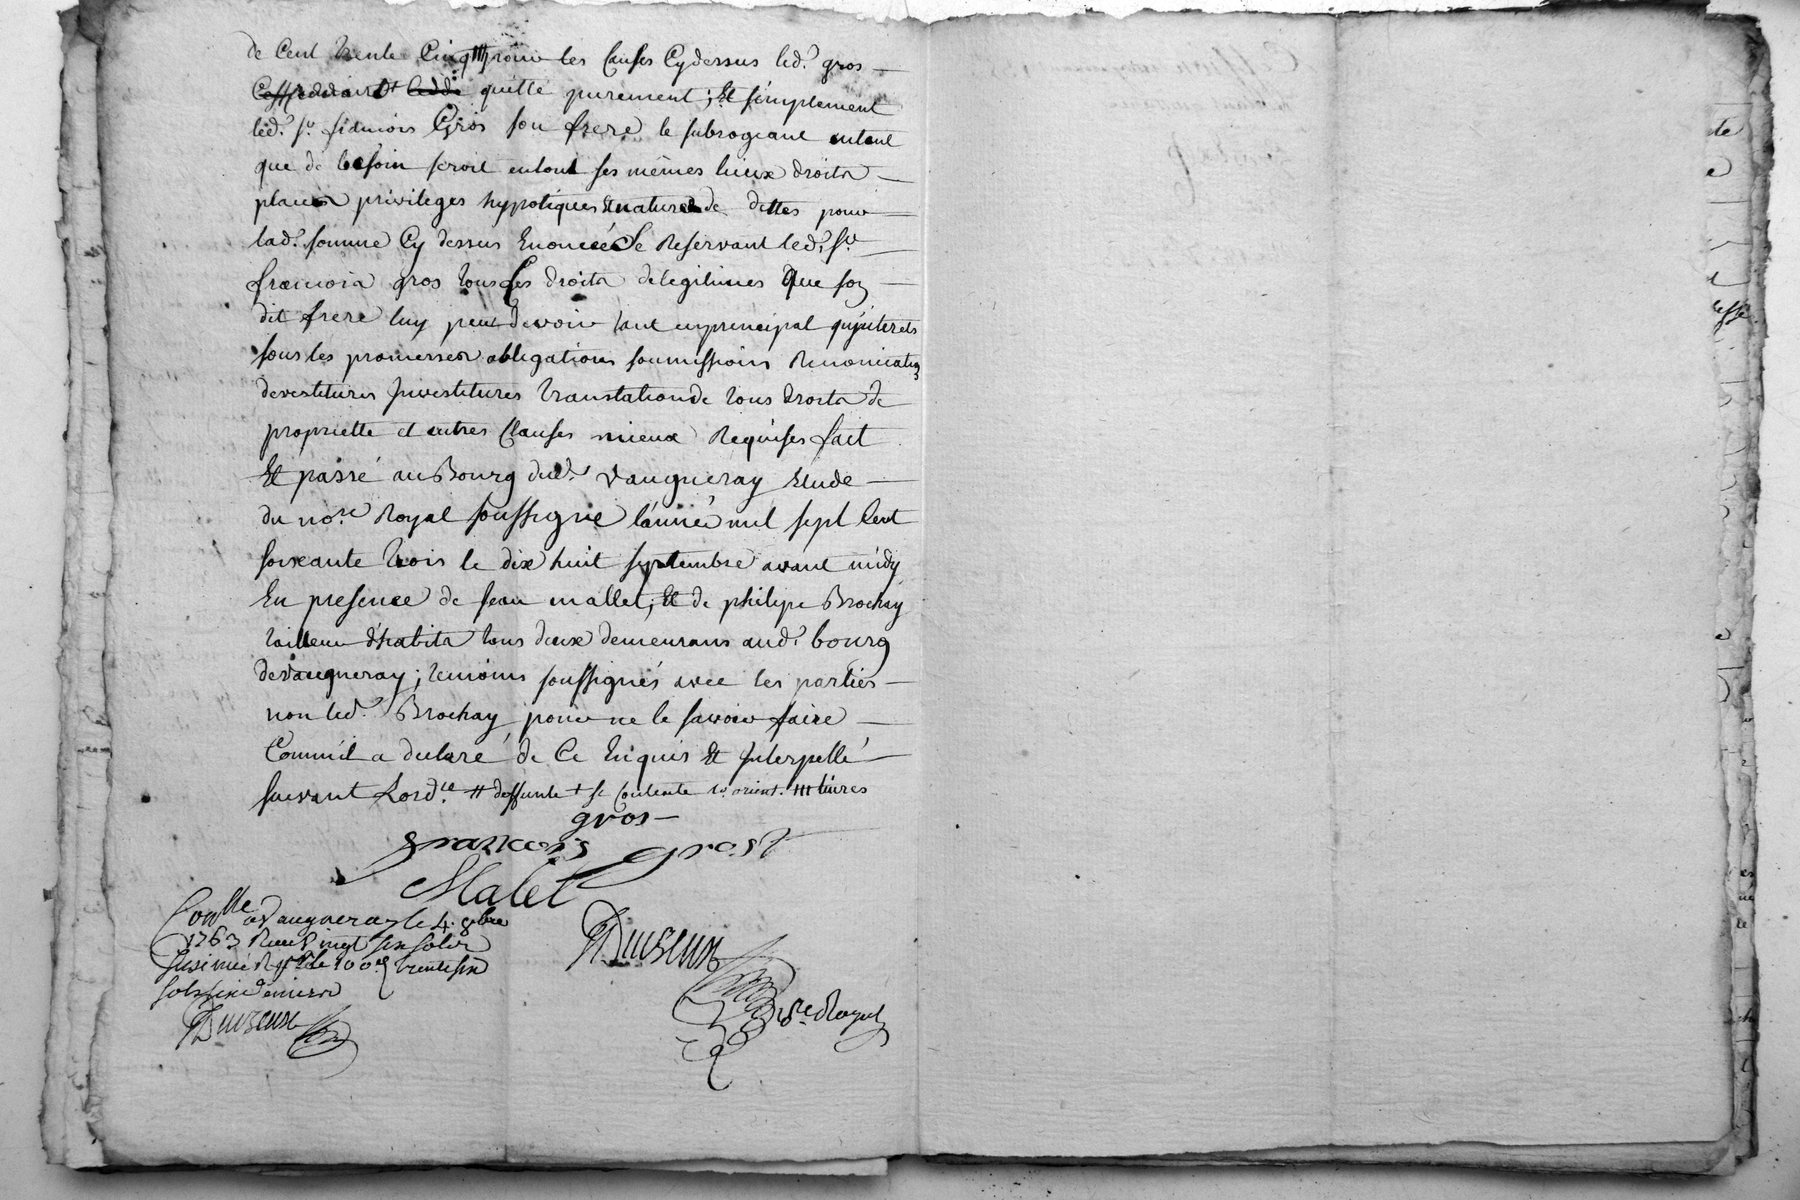 de Cent trente Cinq ₶ pour les Causes Cydessus led. gros
quitte purement; Et simplement
led. sr. francois Gros son frere le subrogeant entant
que de besoin seroit entout ses mêmes lieux droits
places privileges hypotiques Et nature de dettes pour
lad. somme Cy dessus Enoncée Se Reservant led. sr.
francois gros tous ses droits delegitimes que son
dit frere luy peut devoir tant en principal qu'jnterets
sous les promesses obligations soumissions Renonciations
devestitures jnvestitures translation de tous droits de
propriette et autres Clauses mieux Requises fait
Et passé au Bourg dud. Vaugneray Etude
du nore. Royal soussigne l'année mil sept Cent
soixante trois le dix huit septembre avant midy
En presence de jean mallet; Et de philipe Brochay
tailleur d'habits tous deux demeurans aud. bourg
de Vaugneray; temoins soussignés avec les parties
non led. Brochay pour ne le savoir faire
Comm'il a declaré de Ce Enquis Et jnterpellé
suivant Lordce. # deffunte + se Contente ₶ livres
gros
francois gros
Malet
Conlle a Vaugneray le 4. 8bre
1763 Recu vingt six sols
Insinué le 100e trente six
sols six deniers
nre Royal